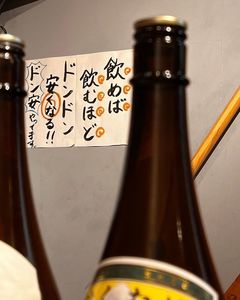 飲めば
飲むほど
ドンドン
安くなる!!
ドン安やってます